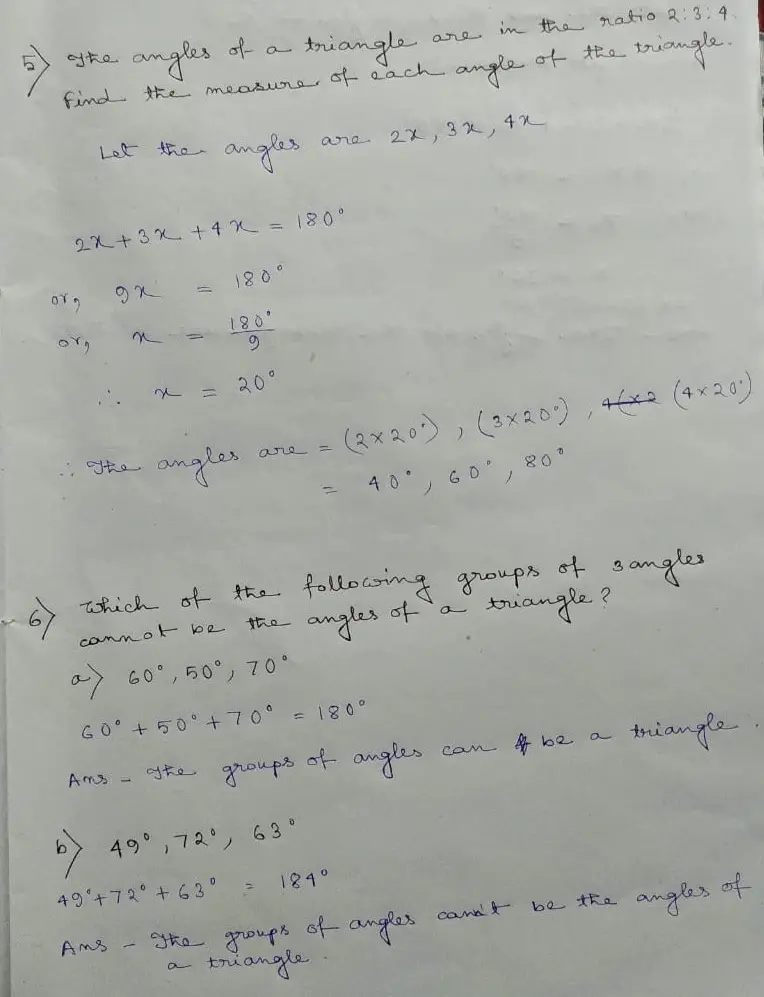 5) The angles of a triangle are in the ratio 2:3:4.
Find the measure of each angle of the triangle.
Let the angles are 2x, 3x, 4x
2x + 3x + 4x = 180°
or, 9x = 180°
or, x = 180°/9
∴ x = 20°
∴ The angles are = (2×20°), (3×20°), (4×20°)
= 40°, 60°, 80°
6) Which of the following groups of 3 angles
cannot be the angles of a triangle?
a) 60°, 50°, 70°
60° + 50° + 70° = 180°
Ans - The groups of angles can be a triangle.
b) 49°, 72°, 63°
49° + 72° + 63° = 184°
Ans - The groups of angles can't be the angles of
a triangle.